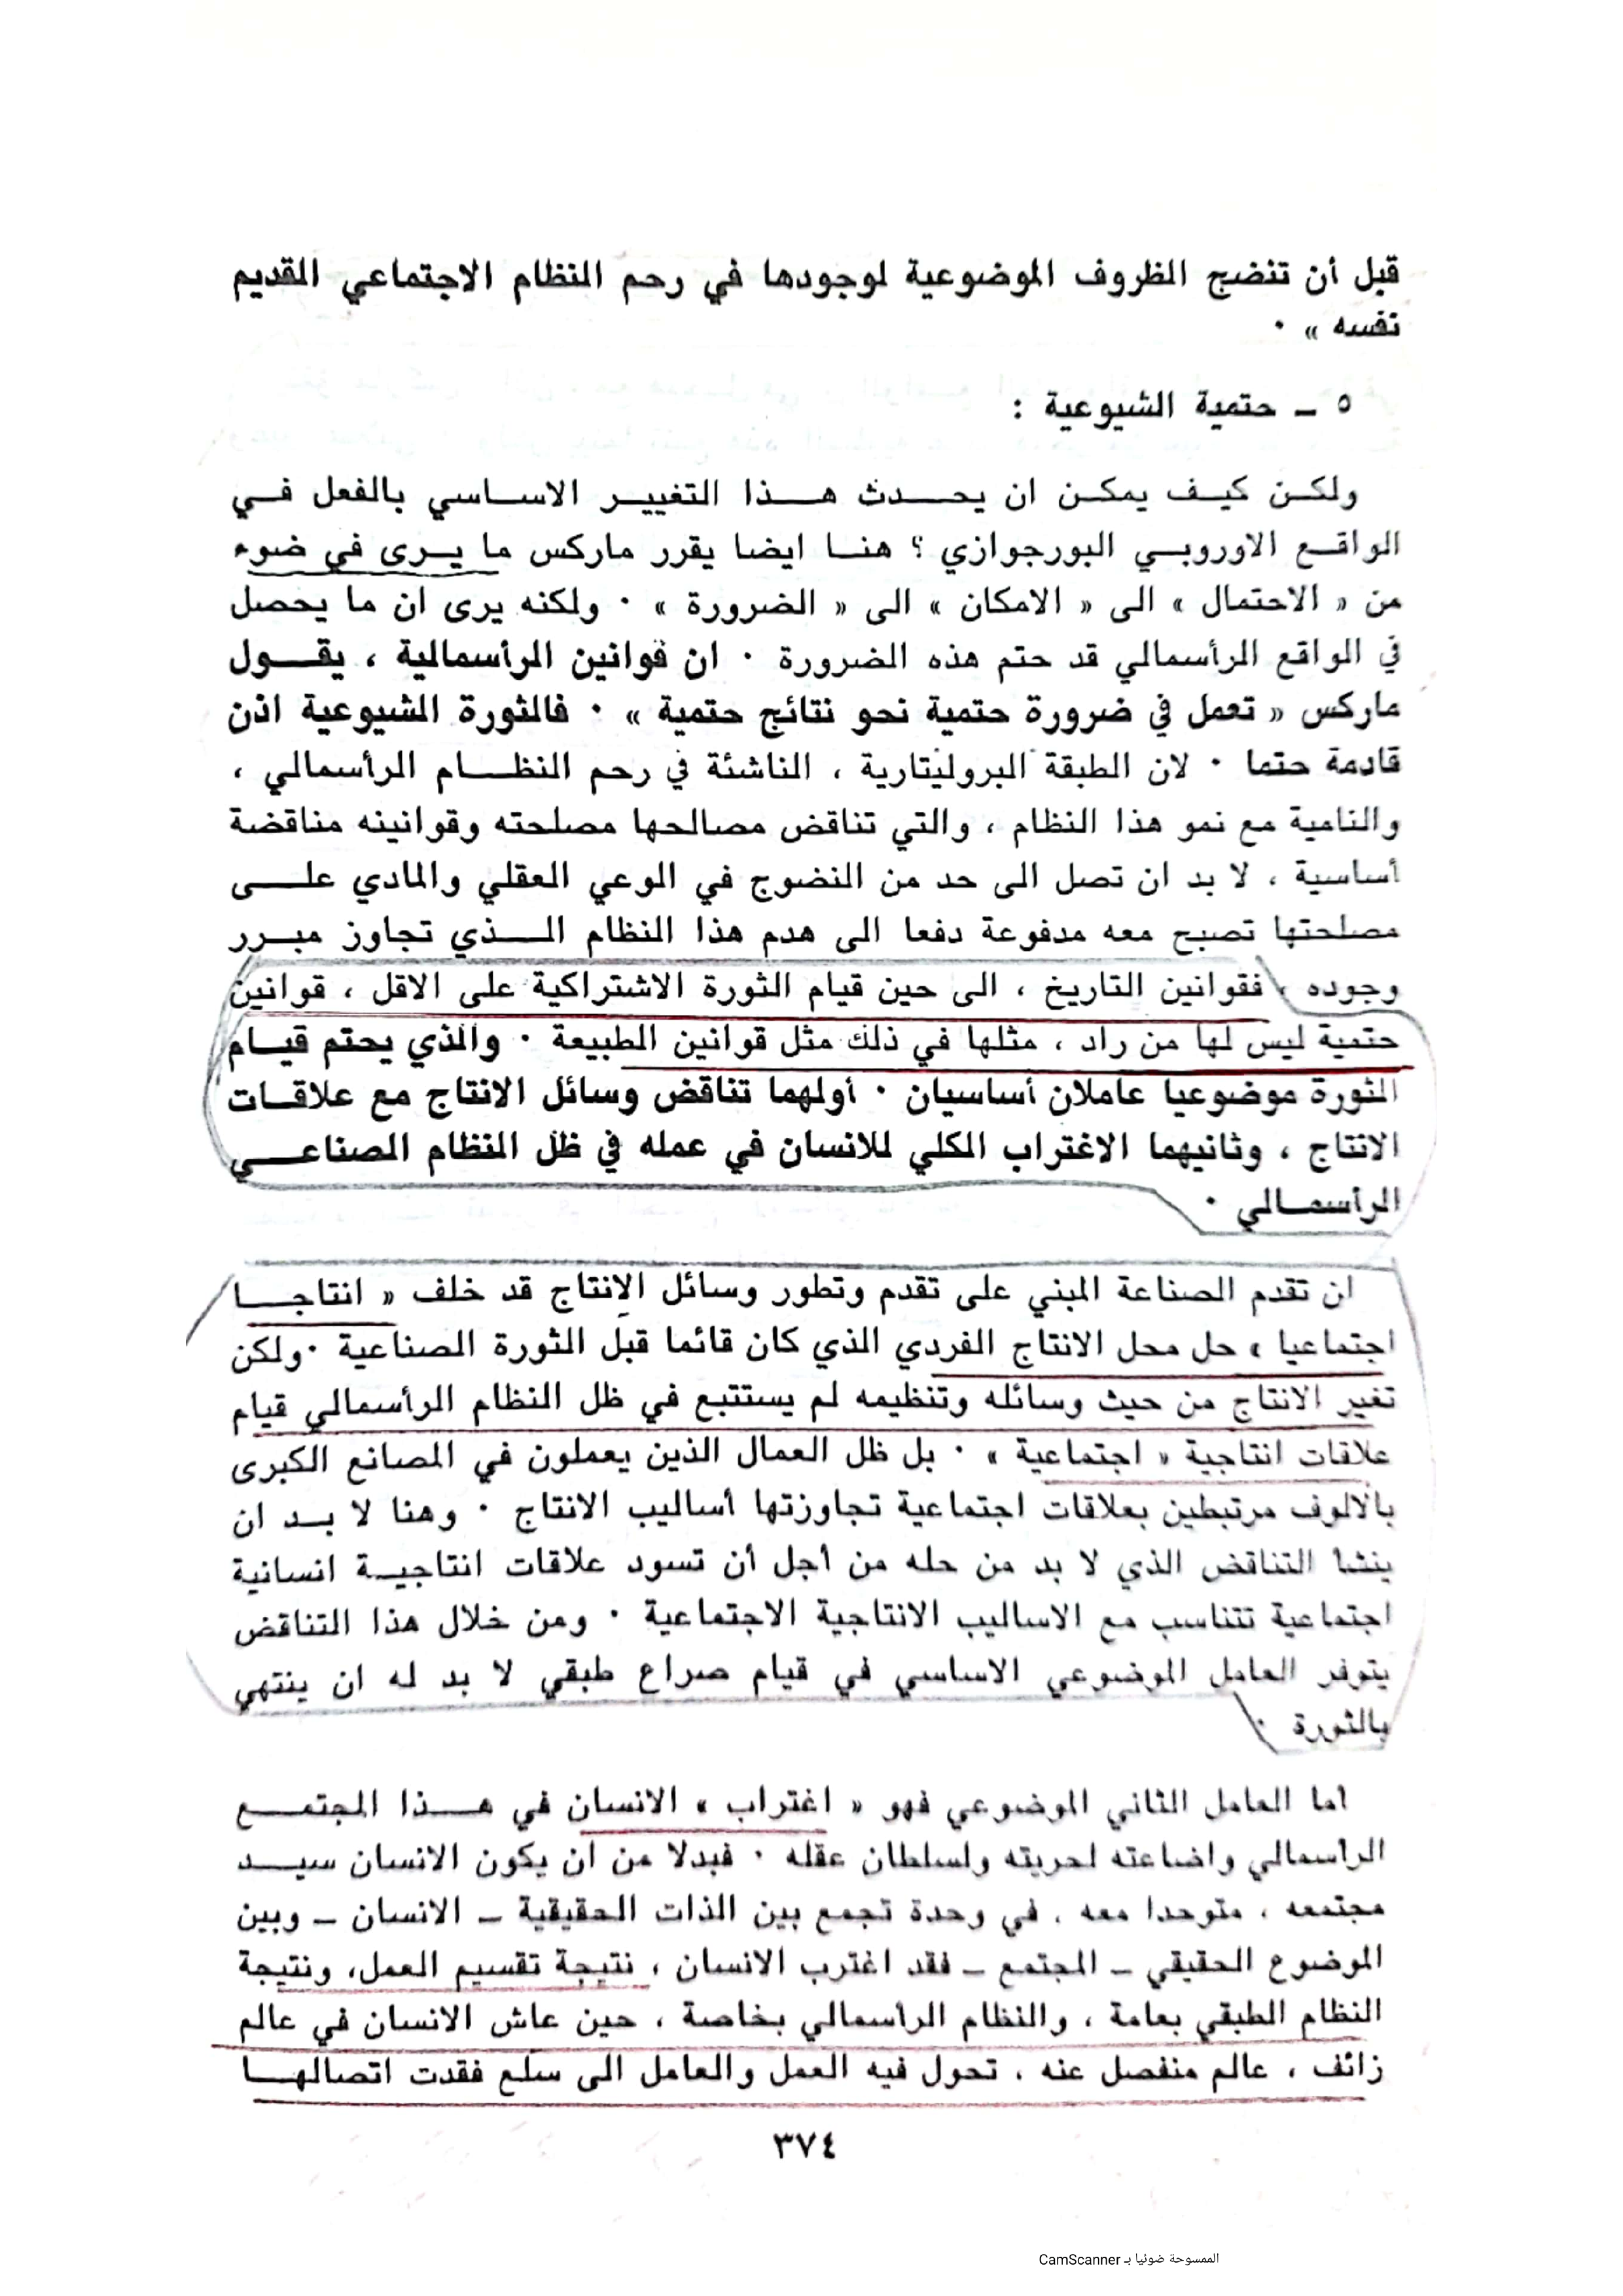 قبل أن تنضج الظروف الموضوعية لوجودها في رحم النظام الاجتماعي القديم
نفسه » ٠
٥ ــ حتمية الشيوعية :
ولكن كيف يمكن ان يحدث هذا التغيير الاساسي بالفعل في
الواقع الاوروبي البورجوازي ؟ هنا ايضا يقرر ماركس ما يرى في ضوء
من « الاحتمال » الى « الامكان » الى « الضرورة » ٠ ولكنه يرى ان ما يحصل
في الواقع الرأسمالي قد حتم هذه الضرورة ٠ ان قوانين الرأسمالية ، يقول
ماركس « تعمل في ضرورة حتمية نحو نتائج حتمية » ٠ فالثورة الشيوعية اذن
قادمة حتما ٠ لان الطبقة البروليتارية ، الناشئة في رحم النظام الرأسمالي ،
والنامية مع نمو هذا النظام ، والتي تناقض مصالحها مصلحته وقوانينه مناقضة
أساسية ، لا بد ان تصل الى حد من النضوج في الوعي العقلي والمادي على
مصلحتها تصبح معه مدفوعة دفعا الى هدم هذا النظام الذي تجاوز مبرر
وجوده ، فقوانين التاريخ ، الى حين قيام الثورة الاشتراكية على الاقل ، قوانين
حتمية ليس لها من راد ، مثلها في ذلك مثل قوانين الطبيعة ٠ والذي يحتم قيام
الثورة موضوعيا عاملان أساسيان ٠ أولهما تناقض وسائل الانتاج مع علاقات
الانتاج ، وثانيهما الاغتراب الكلي للانسان في عمله في ظل النظام الصناعي
الرأسمالي ٠
ان تقدم الصناعة المبني على تقدم وتطور وسائل الانتاج قد خلف « انتاجا
اجتماعيا » حل محل الانتاج الفردي الذي كان قائما قبل الثورة الصناعية ٠ولكن
تغير الانتاج من حيث وسائله وتنظيمه لم يستتبع في ظل النظام الرأسمالي قيام
علاقات انتاجية « اجتماعية » ٠ بل ظل العمال الذين يعملون في المصانع الكبرى
بالالوف مرتبطين بعلاقات اجتماعية تجاوزتها أساليب الانتاج ٠ وهنا لا بد ان
ينشأ التناقض الذي لا بد من حله من أجل أن تسود علاقات انتاجية انسانية
اجتماعية تتناسب مع الاساليب الانتاجية الاجتماعية ٠ ومن خلال هذا التناقض
يتوفر العامل الموضوعي الاساسي في قيام صراع طبقي لا بد له ان ينتهي
بالثورة ٠
اما العامل الثاني الموضوعي فهو « اغتراب » الانسان في هذا المجتمع
الراسمالي واضاعته لحريته ولسلطان عقله ٠ فبدلا من ان يكون الانسان سيد
مجتمعه ، متوحدا معه ، في وحدة تجمع بين الذات الحقيقية ــ الانسان ــ وبين
الموضوع الحقيقي ــ المجتمع ــ فقد اغترب الانسان ، نتيجة تقسيم العمل، ونتيجة
النظام الطبقي بعامة ، والنظام الراسمالي بخاصة ، حين عاش الانسان في عالم
زائف ، عالم منفصل عنه ، تحول فيه العمل والعامل الى سلع فقدت اتصالها
٣٧٤
الممسوحة ضوئيا بـ CamScanner